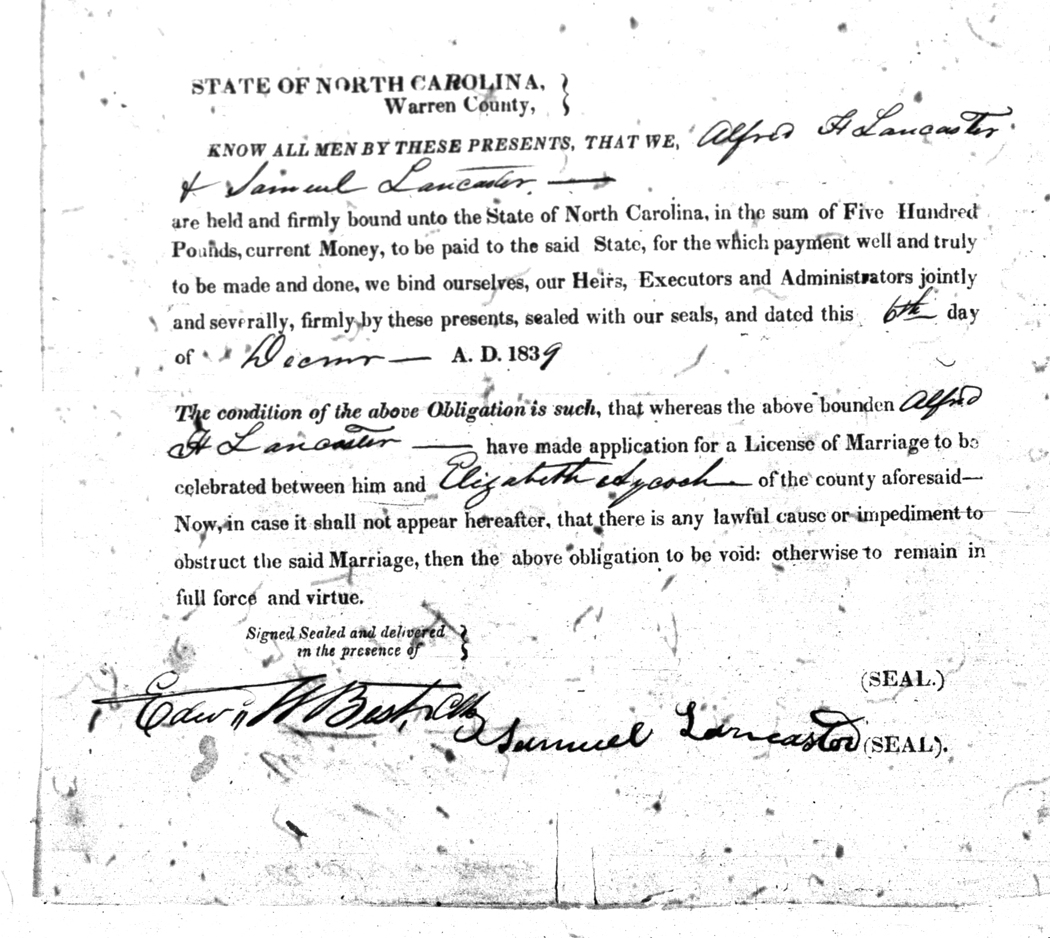 STATE OF NORTH CAROLINA, }
Warren County, }
KNOW ALL MEN BY THESE PRESENTS, THAT WE, Alfred H Lancaster
& Samuel Lancaster. —
are held and firmly bound unto the State of North Carolina, in the sum of Five Hundred
Pounds, current Money, to be paid to the said State, for the which payment well and truly
to be made and done, we bind ourselves, our Heirs, Executors and Administrators jointly
and severally, firmly by these presents, sealed with our seals, and dated this 6th day
of Decmr — A. D. 1839
The condition of the above Obligation is such, that whereas the above bounden Alfred
H Lancaster — have made application for a License of Marriage to be
celebrated between him and Elizabeth Aycock — of the county aforesaid—
Now, in case it shall not appear hereafter, that there is any lawful cause or impediment to
obstruct the said Marriage, then the above obligation to be void: otherwise to remain in
full force and virtue.
Signed Sealed and delivered }
in the presence of }
(SEAL.)
Edwin W Best, Clk
Samuel Lancaster (SEAL).